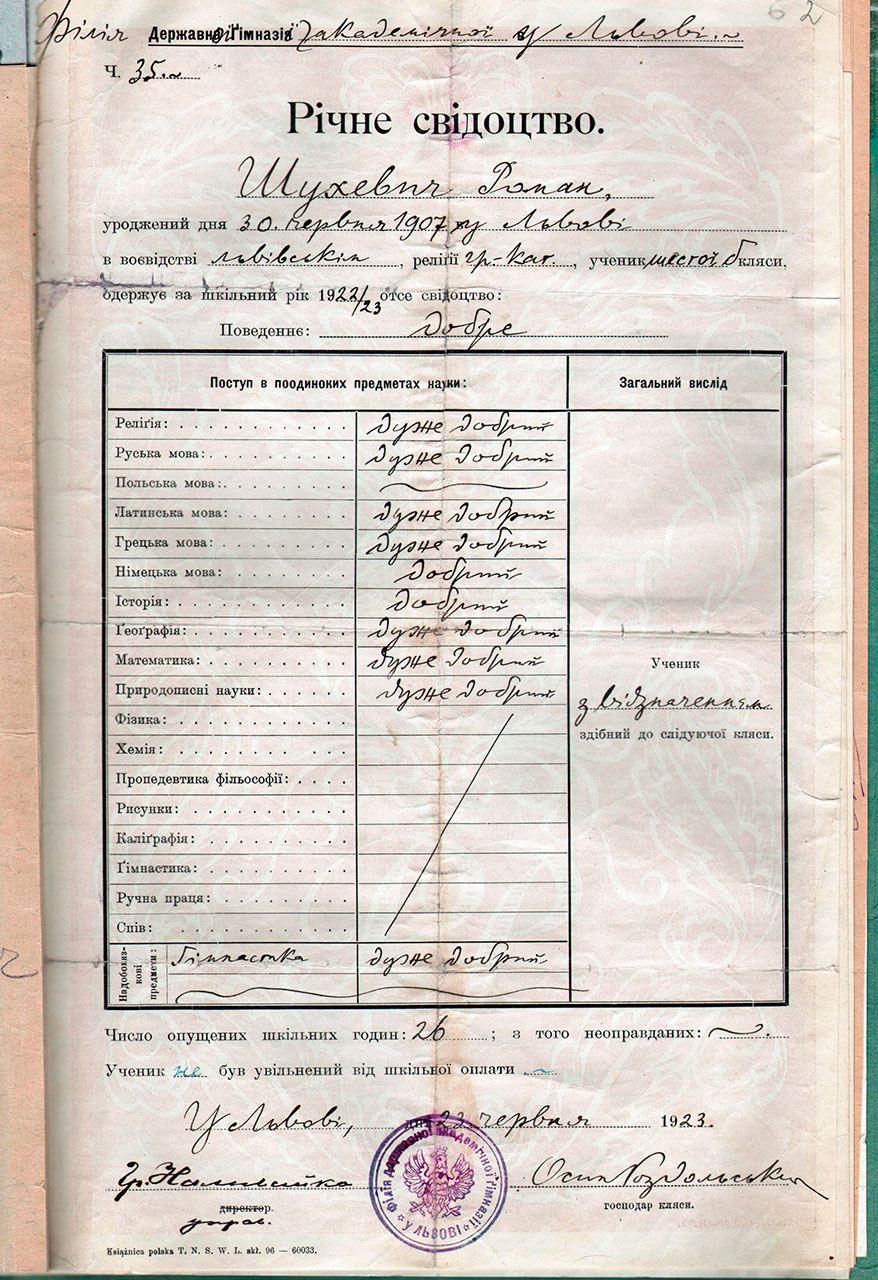 62
Філія Державної Ґімназії академічної у Львові
Ч. 35
Річне свідоцтво.
Шухевич Роман,
уроджений дня 30. червня 1907 у Львові
в воєвідстві львівськім, релігії гр-кат., ученик шестої б кляси,
одержує за шкільний рік 1922/23 отсе свідоцтво:
Поведеннє: добре
Поступ в поодиноких предметах науки: Загальний вислід
Релігія: дуже добрий
Руська мова: дуже добрий
Польська мова:
Латинська мова: дуже добрий
Грецька мова: дуже добрий
Німецька мова: добрий
Історія: добрий
Ґеоґрафія: дуже добрий
Математика: дуже добрий
Природописні науки: дуже добрий
Фізика:
Хемія:
Пропедевтика фільософії:
Рисунки:
Каліґрафія:
Ґімнастика:
Ручна праця:
Спів:
Ученик
з відзначенням
здібний до слідуючої кляси.
Надобовяз-
кові
предмети:
Гімнастика дуже добрий
Число опущених шкільних годин: 26; з того неоправданих:
Ученик не був увільнений від шкільної оплати
У Львові, дня 22 червня 1923.
Філія державної академічної ґімназії
У ЛЬВОВІ
Осип Роздольський
директор.
управ.
господар кляси.
Książnica polska T. N. S. W. L. skł. 96 — 60033.